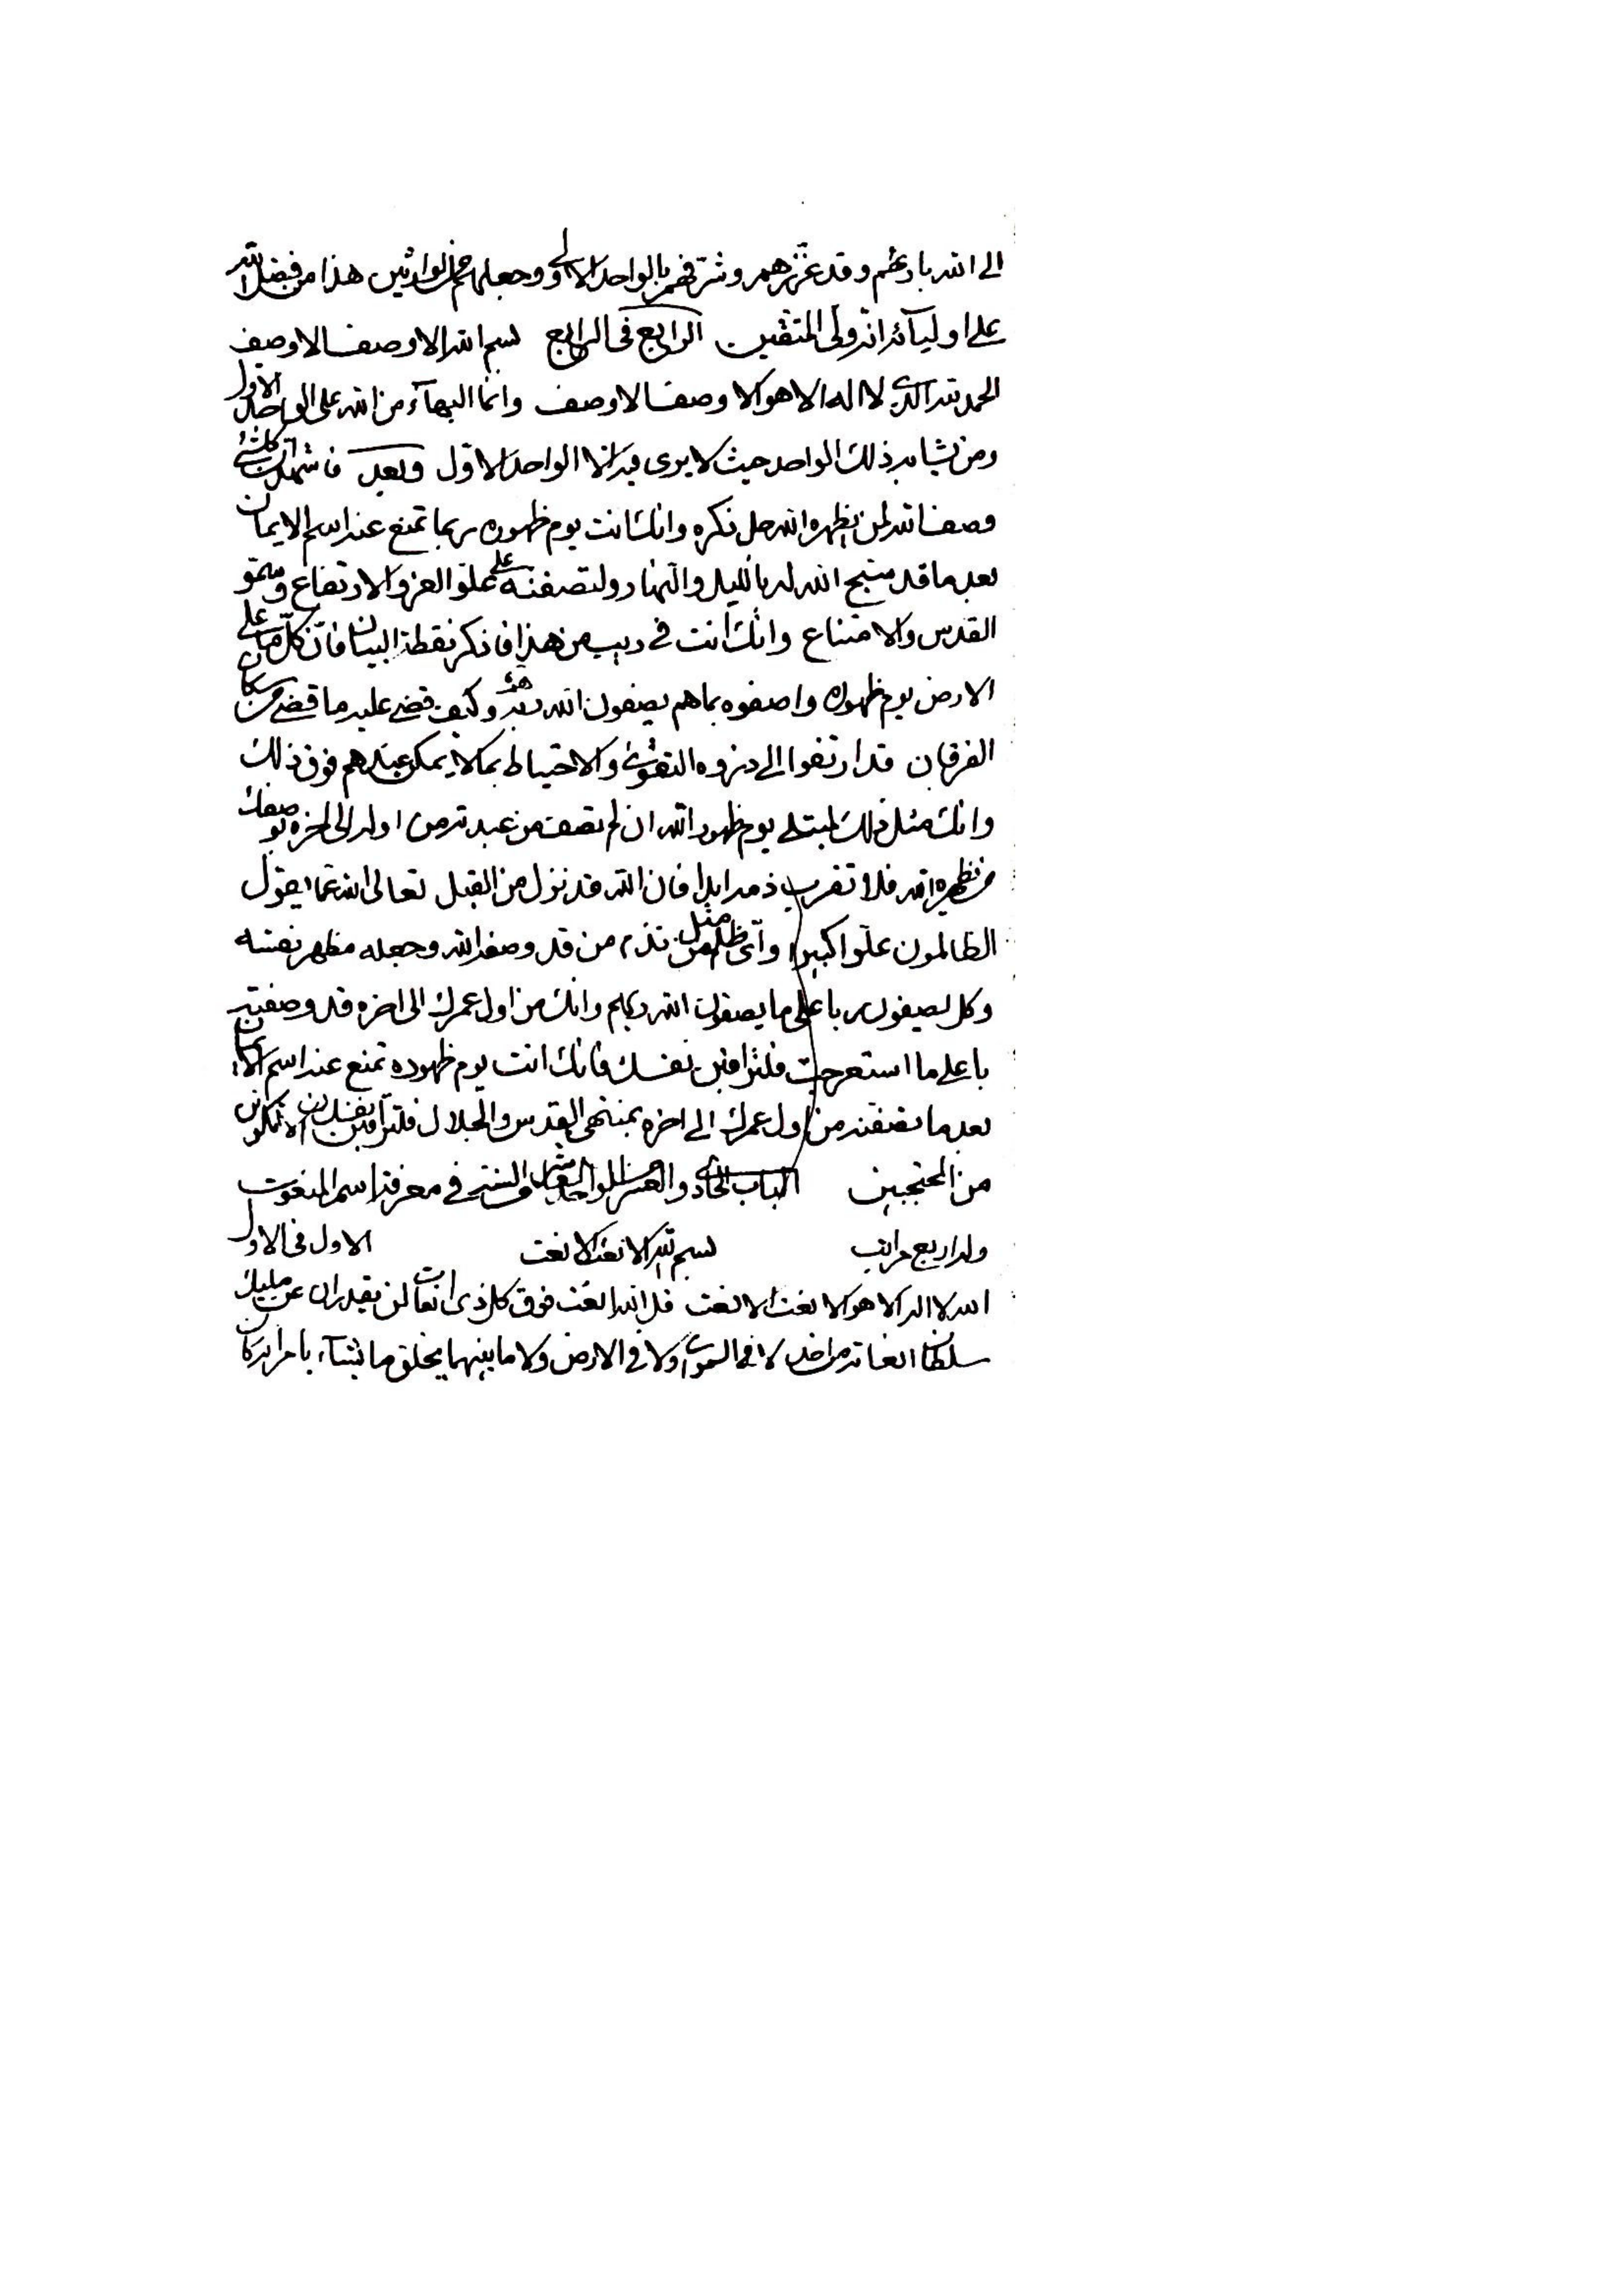 الى الله بارئهم وقد عززهم وشرفهم بالواحد الاولى وجعلهم من الوارثين هذا من فضل الله
على اوليآئه انه ولى المتقين الرابع فى الرابع بسم الله الاوصف الاوصف
الحمد لله الذى لا اله الا هو الاوصف الاوصف وانما البهآء من الله على الواحد الاول
ومن يشابه ذلك الواحد حيث لا يرى فيه الا الواحد الاول وبعد فاشهد ان كلشئ
وصفا لله لمن يظهره الله جل ذكره وانك انت يوم ظهوره ربما تمنع عنه اسم الايمان
بعد ما قد سبح الله له بالليل والنهار ولتصفنه على علو العز والارتفاع وسمو
القدس والامتناع وانك انت فى ريب من هذا فاذكر نقطة البيان فان كل ما على
الارض يوم ظهوره واصفوه بما هم يصفون الله به وكيف قضى عليه ما قضى من سكان
الفرقان قد ارتقوا الى ذروه التقوى والاحتياط بما لا يمكن عندهم فوق ذلك
وانك مثل ذلك لمبتلى يوم ظهور الله ان لم تصف من عبد ته من اوله الى اخره بوصفك
من يظهره الله فلا تقرب ذمه ابدا فان الله قد نزل من القبل تعالى الله عما يقول
الظالمون علوا كبيرا واى ظلم مثل من تذم من قد وصفه الله وجعله مظهر نفسه
وكل يصيفون باعلى ما يصفون الله ربهم وانك من اول عمرك الى اخره قد وصفته
باعلى ما استعرجت فلتراقبن نفسك فانك انت يوم ظهوره تمنع عنه اسم الايمان
بعد ما تصفنه من اول عمرك الى اخره بمنتهى القدس والجلال فلتراقبن نفسك ان لا تكونن
من المحتجبين الباب الحادى والعشر فى معرفة اسم المنعوت
وله اربع مراتب بسم الله الانعت الانعت الاول فى الاول
الله لا اله الا هو الانعت الانعت قل الله انعت فوق كل ذى انعات لن يقدر ان عن مليك
سلطان انعاته من احد لا فى السموات ولا فى الارض ولا ما بينهما يخلق ما يشآء بامره انه كان